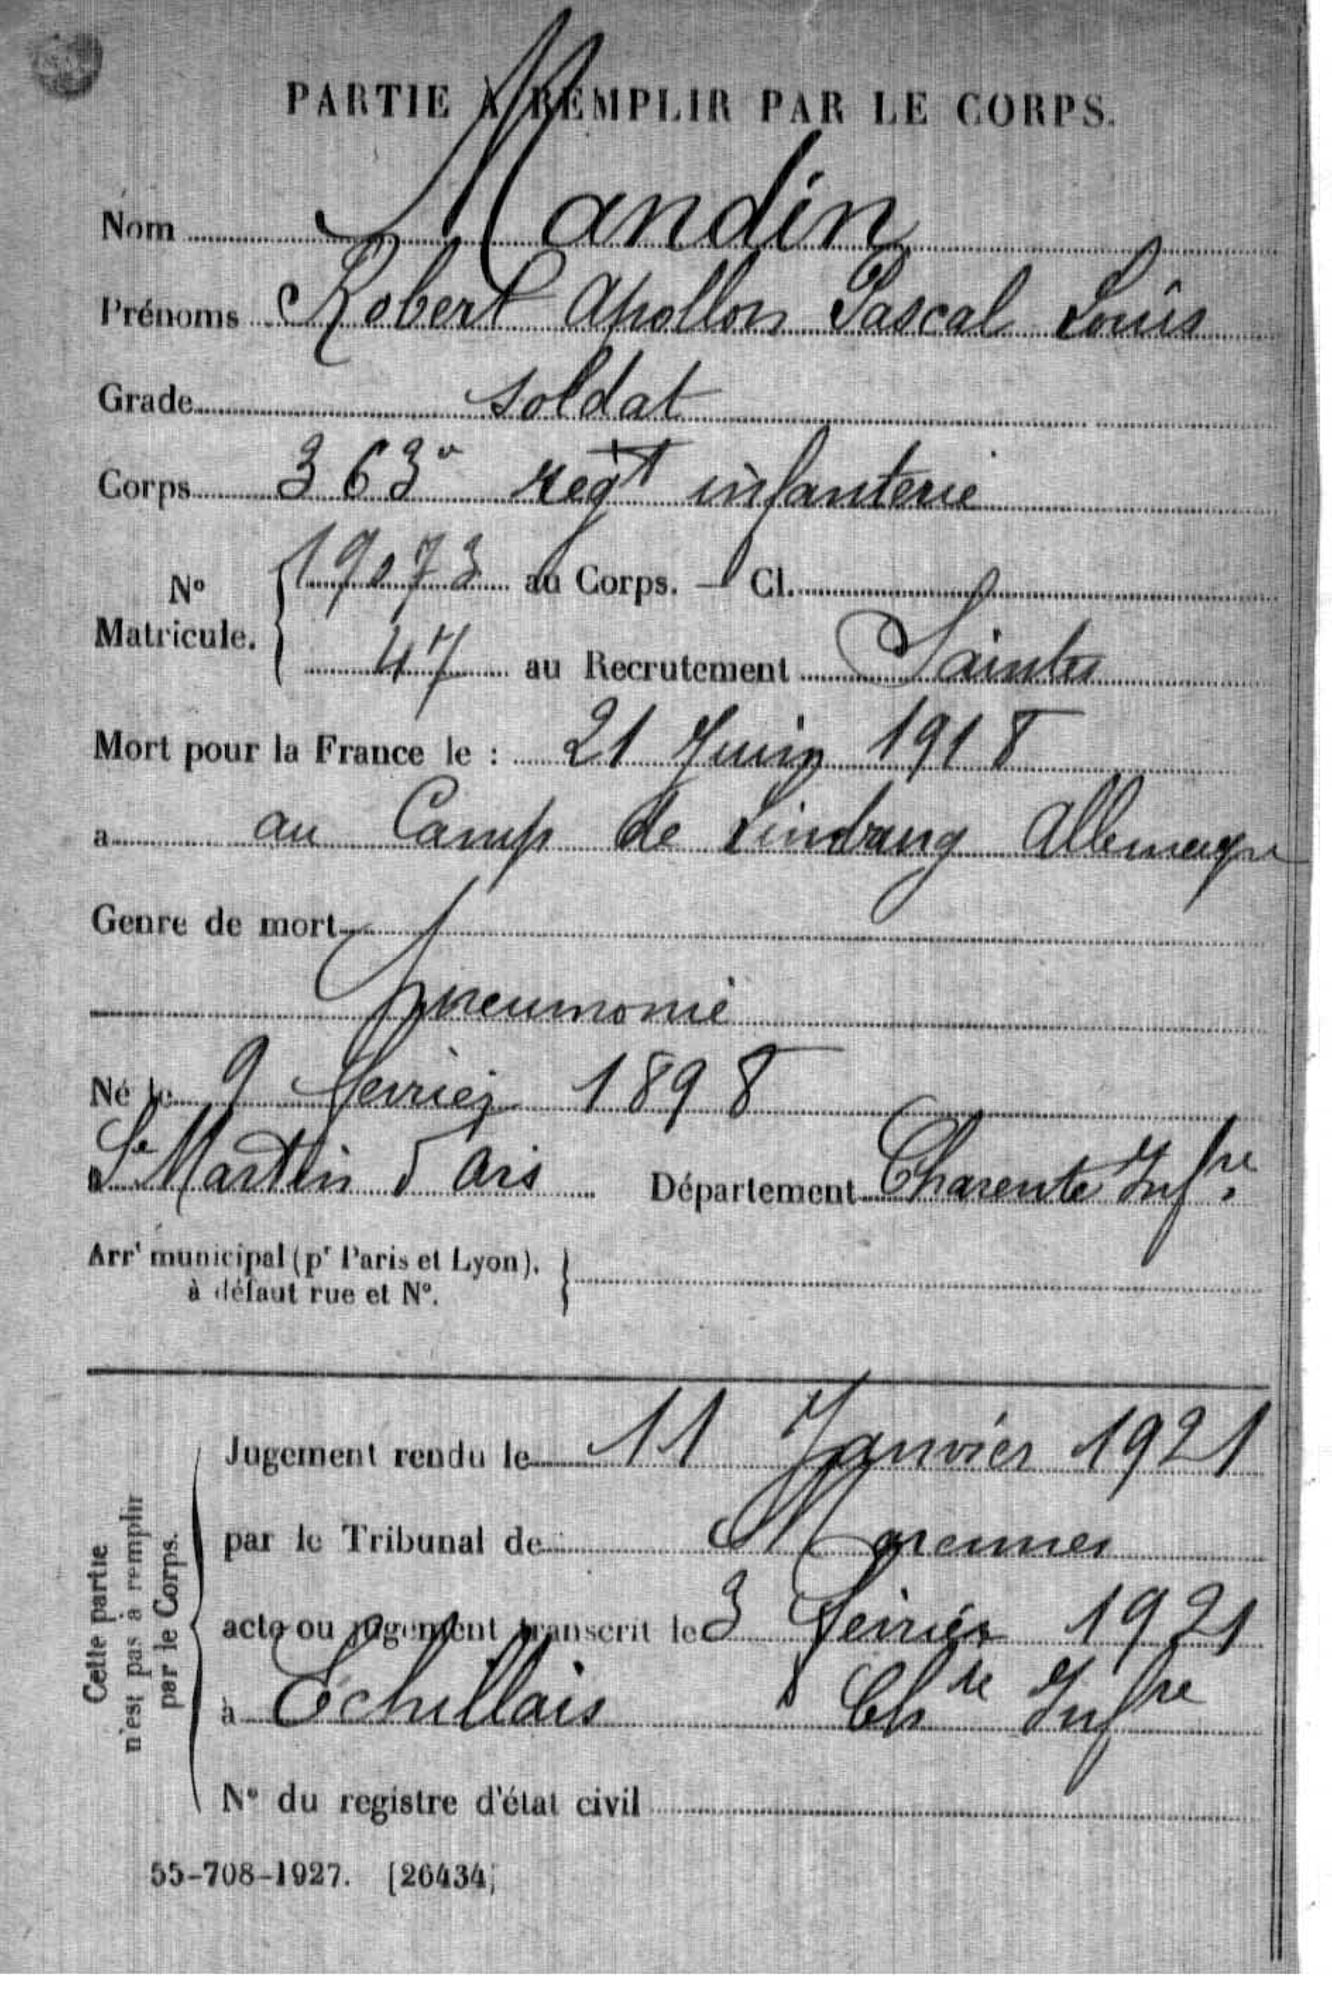 PARTIE A REMPLIR PAR LE CORPS.
Nom Mandin
Prénoms Robert Apollon Pascal Louis
Grade soldat
Corps 363e regt infanterie
No 19073 au Corps. — Cl.
Matricule. 47 au Recrutement Saintes
Mort pour la France le : 21 Juin 1918
a au Camp de Allemagne
Genre de mort
pneumonie
Né le 9 fevrier 1898
à St Martin d'Ars Département Charente Infre.
Arrt municipal (pr Paris et Lyon),
à défaut rue et No.
Jugement rendu le 11 Janvier 1921
par le Tribunal de Marennes
acte ou jugement transcrit le 3 fevrier 1921
à Echillais Chte Infre
No du registre d'état civil
Cette partie
n'est pas à remplir
par le Corps.
55-708-1927. [26434]